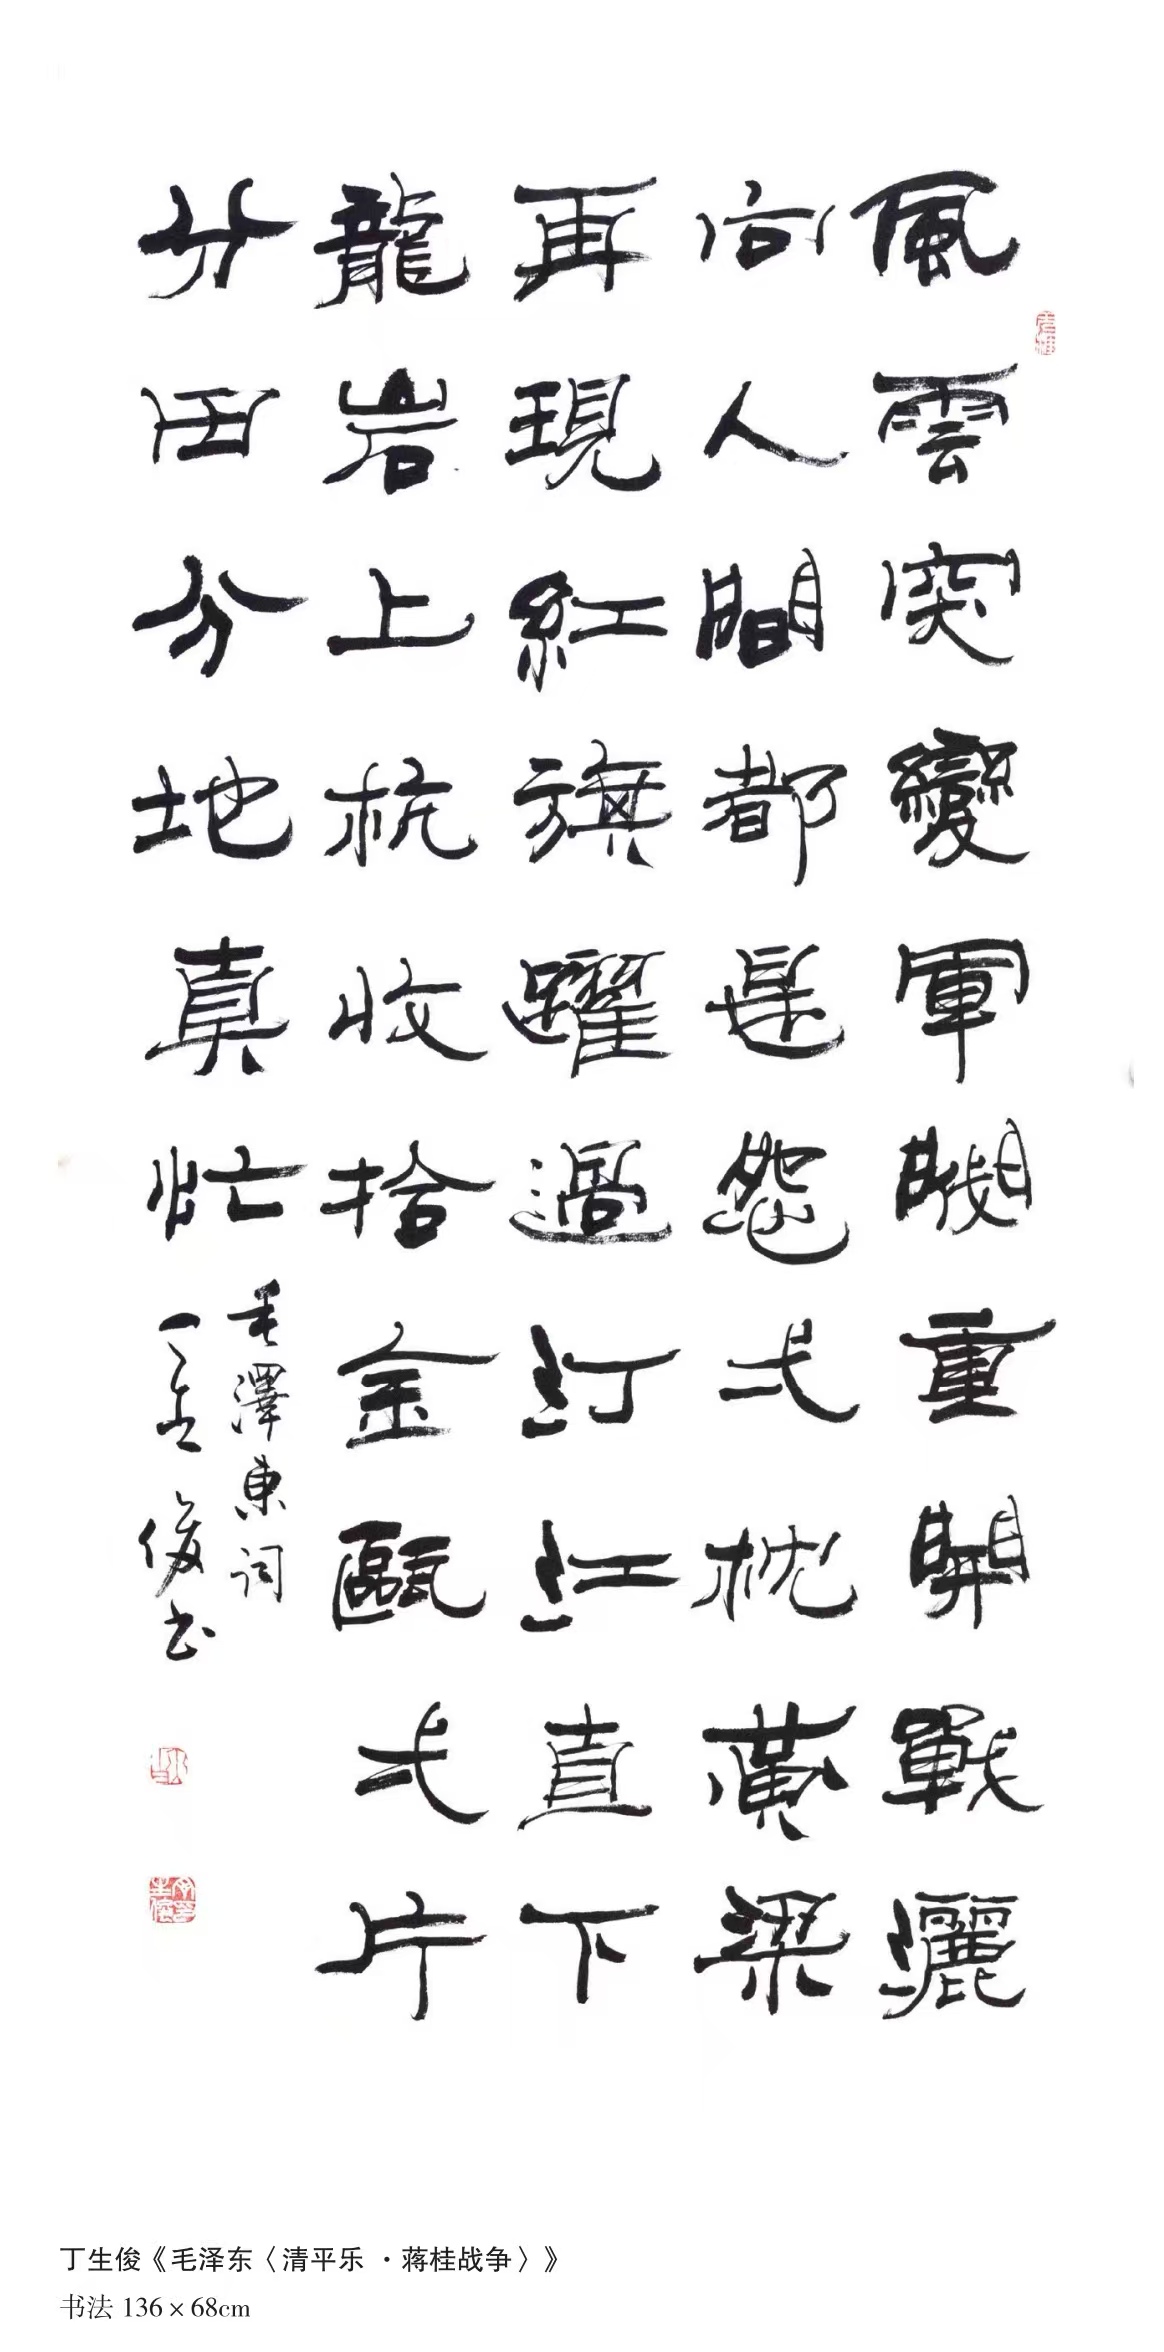 風雲突變軍閥重開戰灑
向人間都是怨弌枕黃梁
再現紅旗躍過汀江直下
龍岩上杭收拾金甌弌片
分田分地真忙
毛澤東詞
丁生俊书
丁生俊《毛泽东〈清平乐 · 蒋桂战争〉》
书法 136 × 68cm